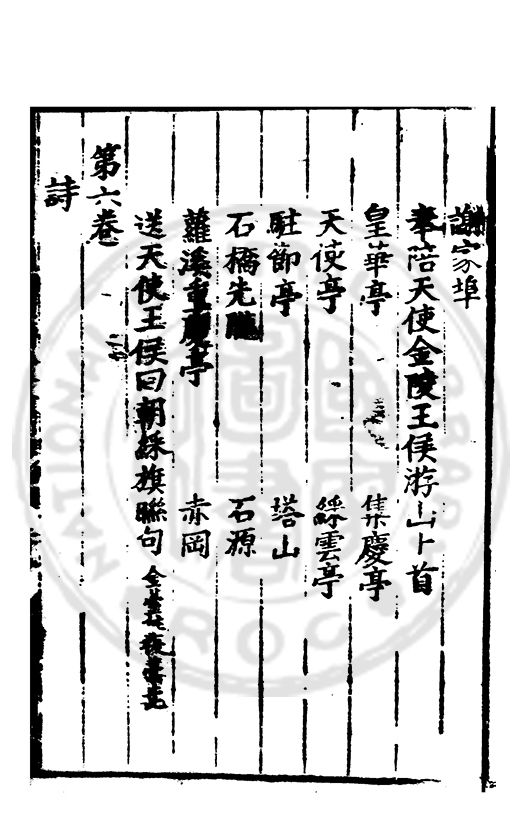 謝家埠
奉陪天使金陵王侯游山十首
皇華亭 集慶亭
天使亭 綵雲亭
駐節亭 塔山
石橋先隴 石源
蘿溪重慶亭 赤岡
送天使王侯囘朝綵旗聯句
第六卷
詩